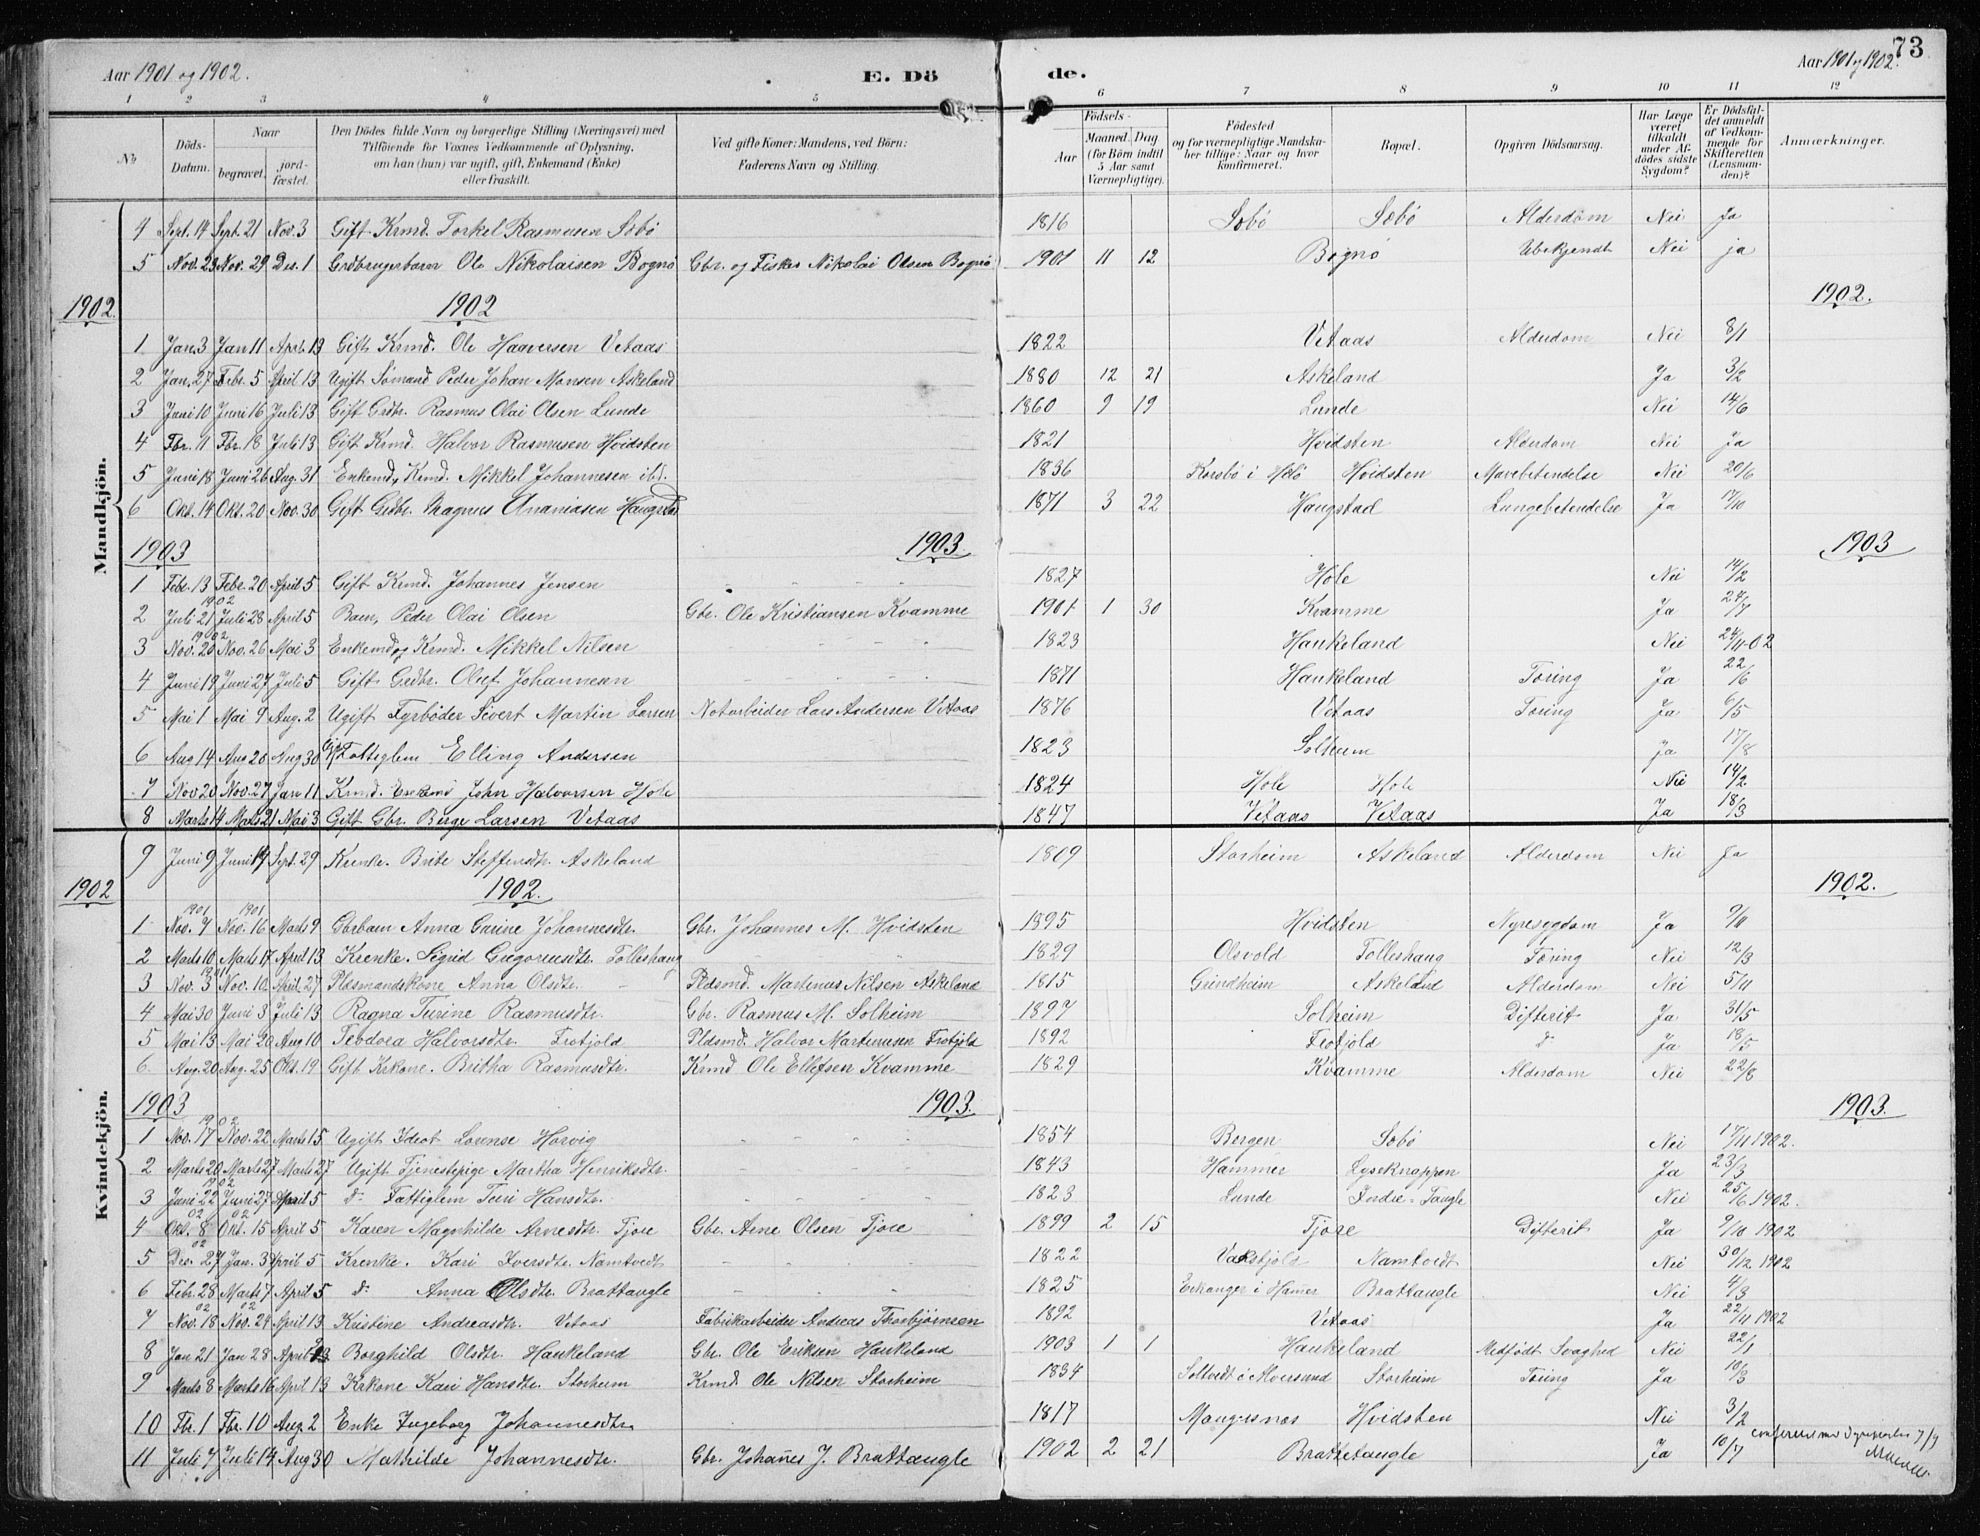 Aar 1901 og 1902. E. Dö de. Aar 1901 og 1902. 73
1 2 3 4 5 6 7 8 9 10 11 12
№ Döds-Datum. Naar begravet. jord-fæstet. Den Dödes fulde Navn og borgerlige Stilling (Næringsvei) med Tilföiende for Voxnes Vedkommende af Oplysning, om han (hun) var ugift, gift, Enkemand (Enke) eller fraskilt. Ved gifte Koner: Mandens, ved Börn: Faderens Navn og Stilling. Födsels- Aar Maaned. Dag (for Börn indtil 5 Aar samt Værnepligtige). Födested og for værnepligtige Mandskaber tillige: Naar og hvor konfirmeret. Bopæl. Opgiven Dödsaarsag. Har Læge været tilkaldt under Afdödes sidste Sygdom? Er Dödsfaldet anmeldt af Vedkommende for Skifteretten (Lensmanden)? Anmærkninger.
Mandkjön.
4 Sept. 14 Sept. 21 Nov. 3 Gift Krmd. Torkel Rasmusen Sæbö 1816 Sæbö Sæbö Alderdom Nei Ja
5 Nov. 23 Nov. 29 Des. 1 Grdbrugerbarn Ole Nikolaisen Bognö Gbr. og Fisker Nikolai Olsen Bognö 1901 11 12 Bognö Ubekjendt Nei ja
1902. 1902 1902.
1 Jan. 3 Jan 11 April 13 Gift Krmd. Ole Haaversen Vetaas 1822 Vetaas Alderdom Nei 8/1
2 Jan. 27 Febr. 5 April 13 Ugift Sömand Peder Johan Monsen Askeland 1880 12 21 Askeland Ja 3/2
3 Juni 10 Juni 16 Juli 13 Gift Grdbr. Rasmus Olai Olsen Lunde 1860 9 19 Lunde Nei 14/6
4 Fbr. 11 Fbr. 18 Juli 13 Gift Krmd. Halvor Rasmusen Hvidsten 1821 Hvidsten Alderdom Nei Ja
5 Juni 18 Juni 26 Aug. 31 Enkemd, Krmd. Mikkel Johannesen ibd. 1836 Korsbö i Hslö Hvidsten Mavebetendelse Nei 20/6
6 Okt. 14 Okt. 20 Nov. 30 Gift Grdbr. Magnus Ananiasen Haugstad 1871 3 22 Haugstad Lungebetendelse Ja 17/10
1903 1903. 1903
1 Febr. 13 Febr. 20 April 5 Gift Krmd. Johannes Jensen 1827 Hole Nei 14/2
1902
2 Juli 21 Juli 28 April 5 Barn, Peder Olai Olsen Gbr. Ole Kristiansen Kvamme 1901 1 30 Kvamme Ja 24/7
1902
3 Nov. 20 Nov. 26 Mai 3 Enkemd og Krmd. Mikkel Nilsen 1823 Haukeland Nei 24/11-02
4 Juni 19 Juni 27 Juli 5 Gift Grdbr. Oluf Johannesen 1871 Haukeland Tæring Ja 22/6
5 Mai 1 Mai 9 Aug. 2 Ugift Fyrböder Sivert Martin Larsen Notarbeider Lars Andersen Vetaas 1876 Vetaas Tæring Ja 6/5
6 Aug 14 Aug 20 Aug 30 Fattiglem Elling Andersen 1823 Solheim ja 17/8
7 Nov 20 Nov. 27 Jan 11 Krmd. Enkemd John Halvorsen Hole 1824 Hole Hole Nei 14/2
8 Marts 14 Marts 21 Mai 3 Gift Gbr. Berge Larsen Vetaas 1847 Vetaas Vetaas Ja 18/3
Kvindekjön.
9 Juni 9 Juni 19 Sept. 29 Krenke. Brite Steffensdtr. Askeland 1809 Storheim Askeland Alderdom Nei Ja
1902 1902. 1902.
1901 1901
1 Nov. 7 Nov. 16 Marts 9 Gbrbarn Anna Gurine Johannesdtr. Gbr. Johannes M. Hvidsten 1895 Hvidsten Nyresygdom Ja 9/11
2 Marts 10 Marts 17 April 13 Krenke. Sigrid Gregoriusdtr. Tolleshaug 1829 Olsvold Tolleshaug Tæring Nei 12/3
1901
3 Nov. 3 Nov. 10 April 27 Pldsmandskone Anna Olsdtr. Pldsmd. Martinus Nilsen Askeland 1815 Grindheim Askeland Alderdom Nei 5/11
4 Mai 30 Juni 3 Juli 13 Ragna Turine Rasmusdtr. Gbr. Rasmus M. Solheim 1897 Solheim Difterit Ja 31/5
5 Mai 13 Mai 20 Aug 10 Teodora Halvorsdtr. Frotjold Pldsmd. Halvor Martinusen Frotjold 1892 Frotjold do Ja 18/5
6 Aug. 20 Aug. 25 Okt. 19 Gift Krkone. Britha Rasmusdtr. Krmd Ole Ellefsen Kvamme 1829 Kvamme Alderdom Nei 22/8
1903 1903. 1903.
1902
1 Nov. 17 Nov. 22 Marts 15 Ugift Ideot Lovense Horvig 1854 Bergen Sæbö Nei 17/11 1902.
2 Marts 20 Marts 27 Marts 27 Ugift Tjenestepige Martha Henriksdtr. 1843 Hammer Lyseknappen Ja 23/3
1902
3 Juni 22 Juni 27 April 5 do Fattiglem Turi Hansdtr. 1823 Lunde Indre-Taugle Nei 25/6 1902.
02 02
4 Okt. 8 Okt. 15 April 5 Karen Magnhilde Arnesdtr. Tjore Gbr. Arne Olsen Tjore 1899 2 15 Tjore Difterit Ja 9/10 1902
02
5 Des. 27 Jan. 3 April 5 Krenke. Kari Iversdtr. Namtvedt 1822 Vakstjold Namtvedt Nei 30/12 1902
6 Febr. 28 Marts 7 April 5 do Anna Olsdtr. Brattaugle 1825 Eikanger i Hamer Brattaugle Nei 4/3
02 02
7 Nov. 18 Nov. 24 April 13 Kristine Andreasdtr. Vetaas Fabrikarbeider Andreas Thorbjörnsen 1892 Vetaas Ja 22/11 1902
8 Jan 21 Jan 28 April 13 Borghild Olsdtr. Haukeland Gbr. Ole Eriksen Haukeland 1903 1 1 Haukeland Medfödt Svaghed Nei 22/1
9 Marts 8 Marts 16 April 13 Krkone Kari Hansdtr. Storheim Krmd. Ole Nilsen Storheim 1834 Soltvedt i Alversund Storheim Tæring Ja 10/3
10 Fbr. 1 Fbr. 10 Aug. 2 Enke Ingeborg Johannesdtr. 1817 Mangersnes Hvidsten Nei 3/2
11 Juli 7 Juli 14 Aug 30 Mathilde Johannesdtr. Gbr. Johañes J. Brattaugle 1902 2 21 Brattetaugle Ja 10/7